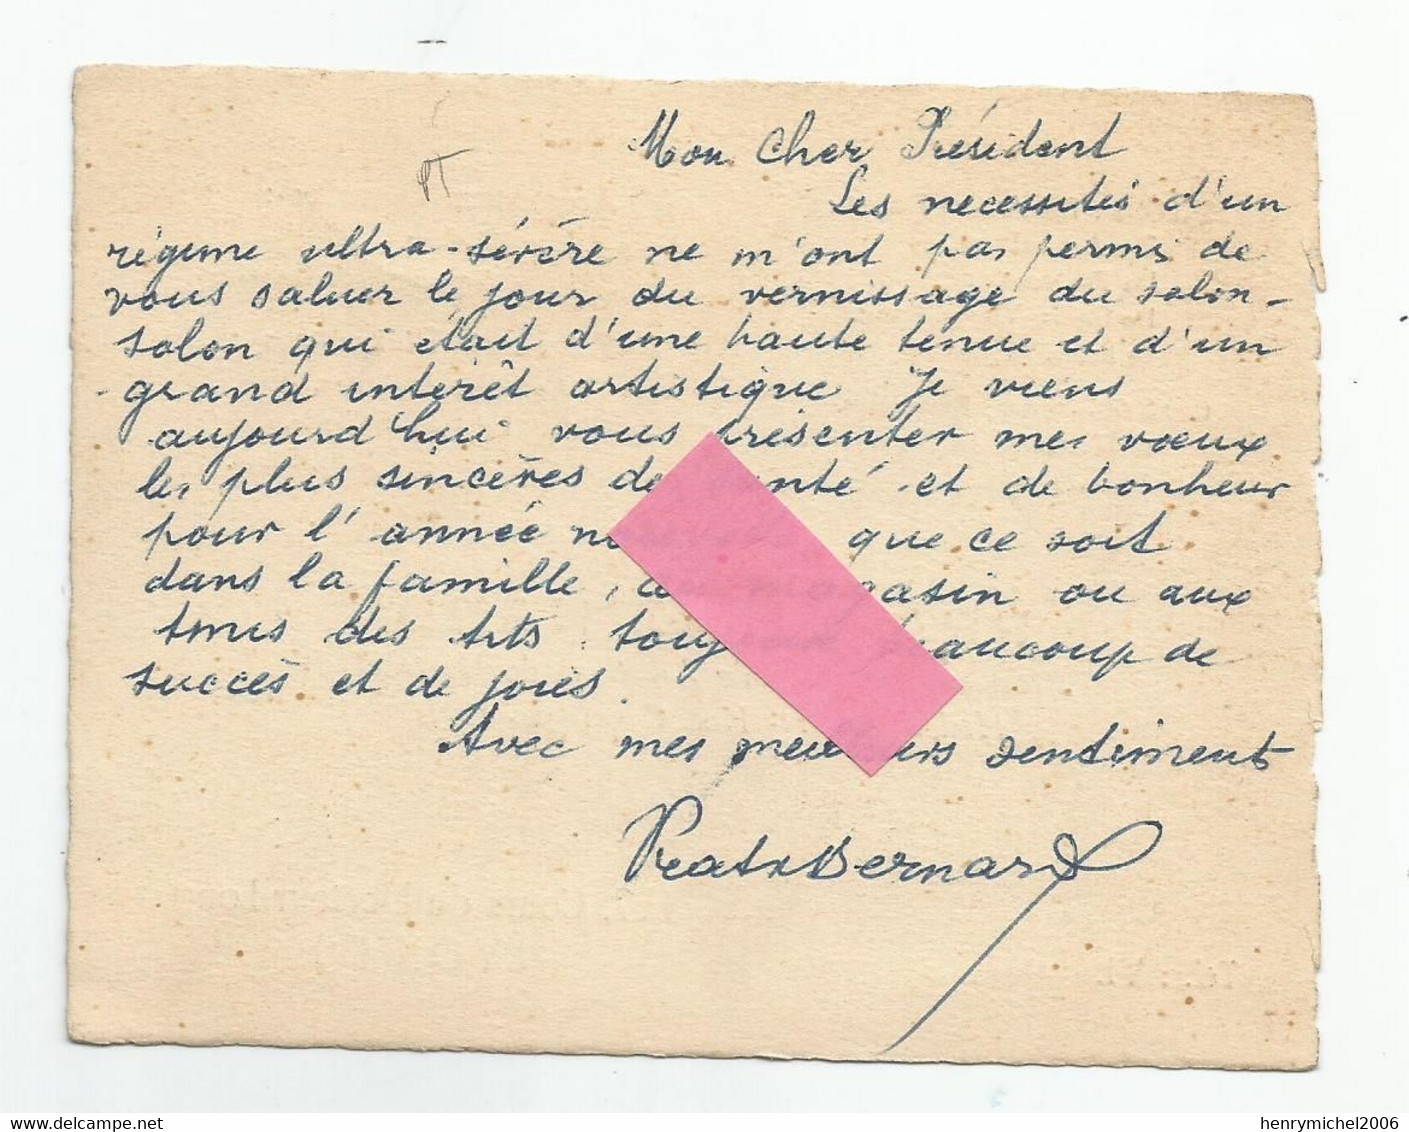 PT
Mon Cher Président
Les necessités d'un
régime ultra-sévère ne m'ont pas permis de
vous saluer le jour du vernissage du salon-
salon qui était d'une haute tenue et d'un
grand intérêt artistique Je viens
aujourd'hui vous présenter mes voeux
les plus sincères de santé et de bonheur
pour l'année que ce soit
dans la famille, ou aux
des Arts toujours beaucoup de
succès et de joies.
Avec mes meilleurs sentiments
Bernard
delcampe.net
henrymichel2006